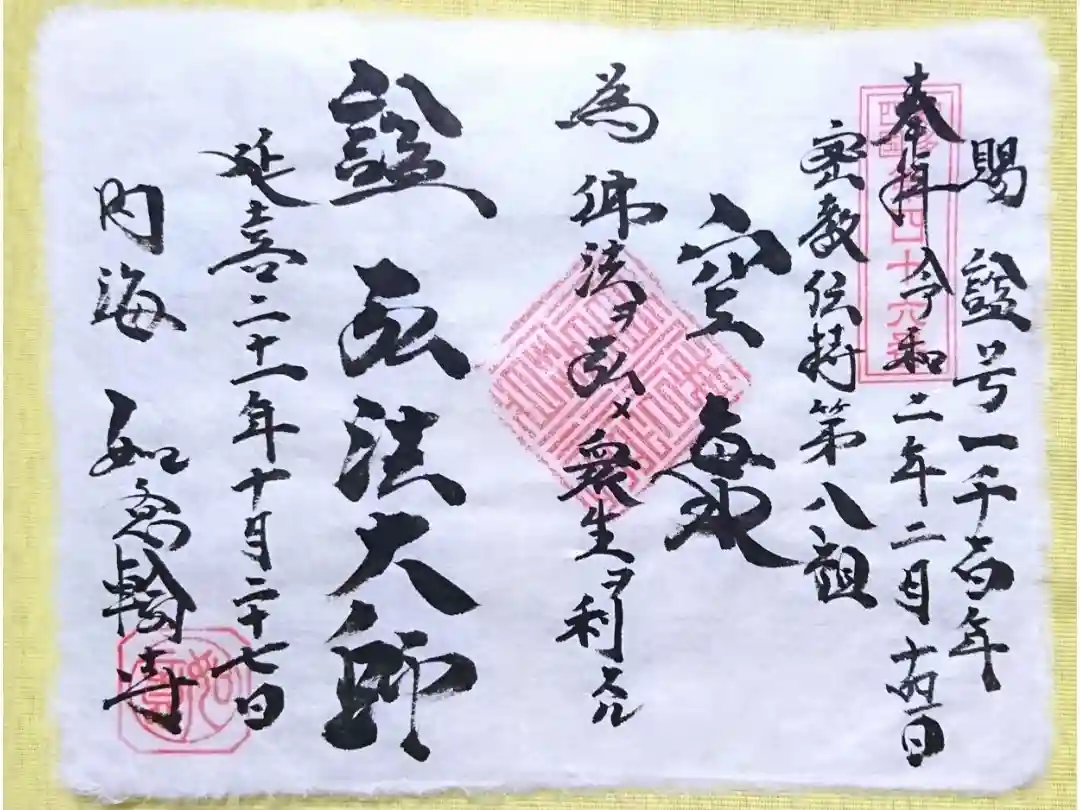 賜 諡号一千百年
奉拝 令和二年二月十四日
四十六番
密教伝持第八祖
空海
為 佛法ヲ弘メ衆生ヲ利スル
諡 弘法大師
延喜二十一年十月二十七日
内海 如意輪寺